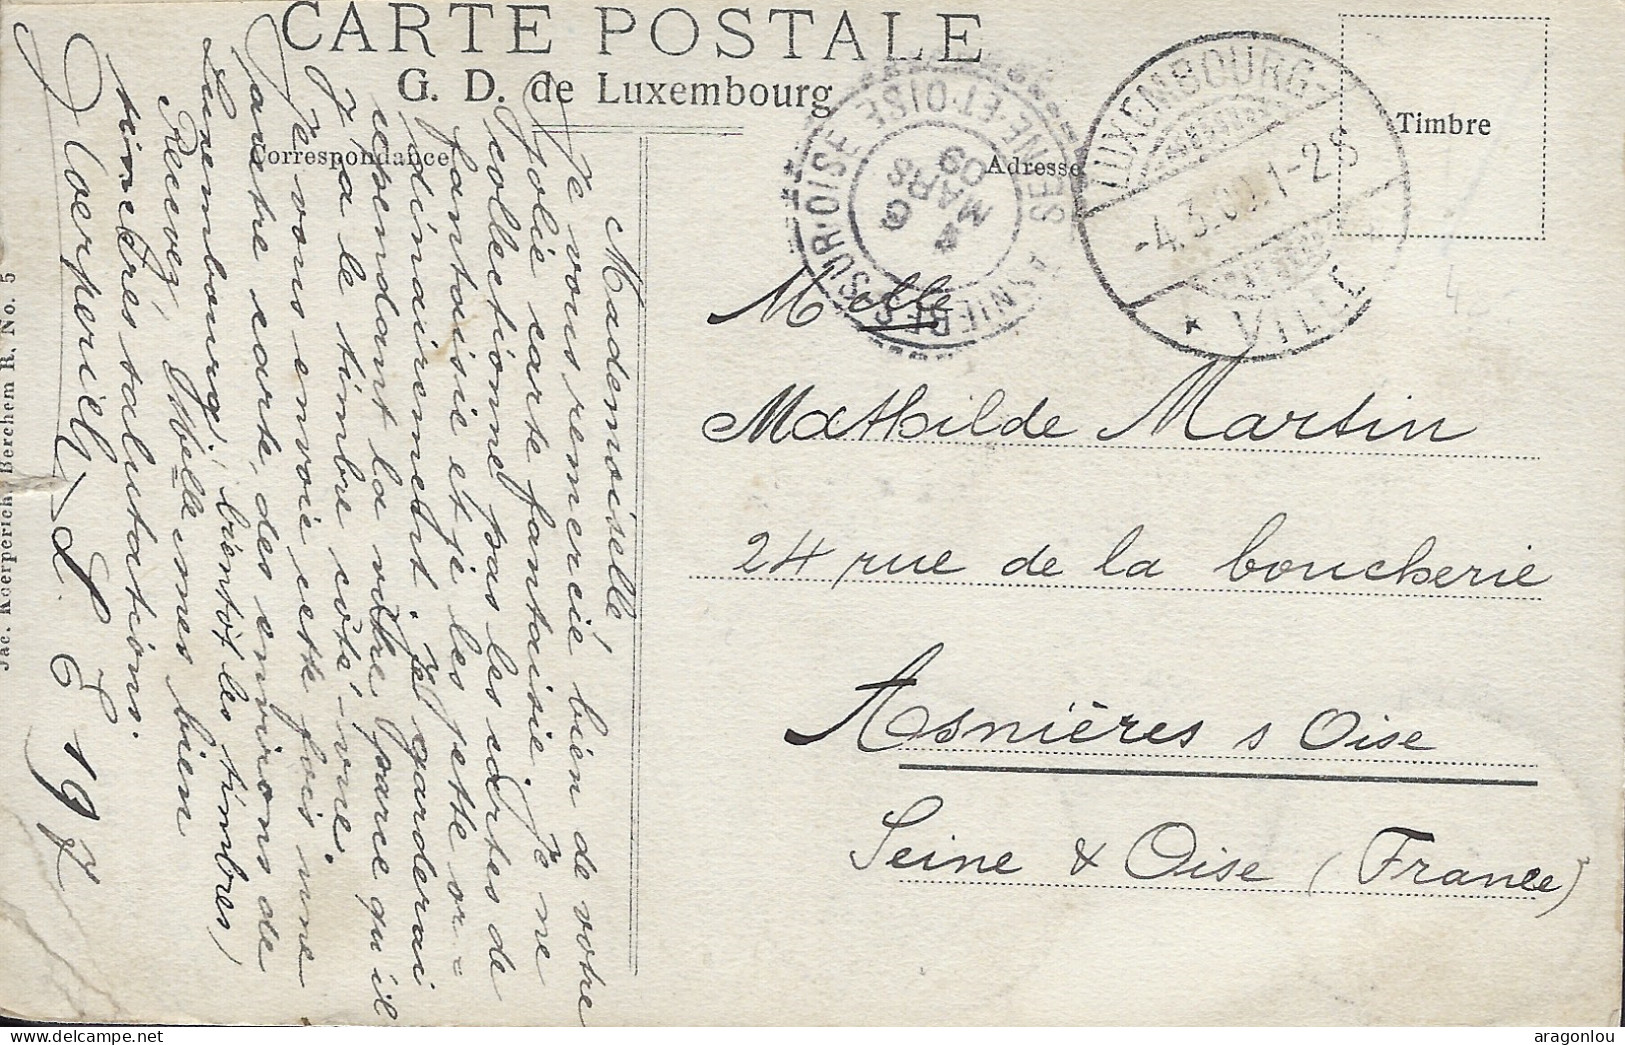 CARTE POSTALE
G. D. de Luxembourg
Correspondance
Adresse
Timbre
LUXEMBOURG-
-4.3.09.1-2S
* VILLE
ASNIERES-SUR-OISE
SEINE-ET-OISE
4
MARS
09
Mademoiselle
Je vous remercie bien de votre
jolie carte fantaisie. Je ne
collectionne pas les cartes de
fantaisie et je les jette or-
dinairement. Je garderai
cependant la vôtre parce qu'il
y a le timbre côté-vue.
Je vous envoie cette fois une
autre carte, des environs de
Luxembourg; bientôt les timbres)
Recevez, Melle mes bien
sincères salutations.
J Koerperich, L. P. E 197
Melle
Mathilde Martin
24 rue de la boucherie
Asnières s Oise
Seine & Oise (France)
Jac. Koerperich, Berchem R. No. 5
aragonlou